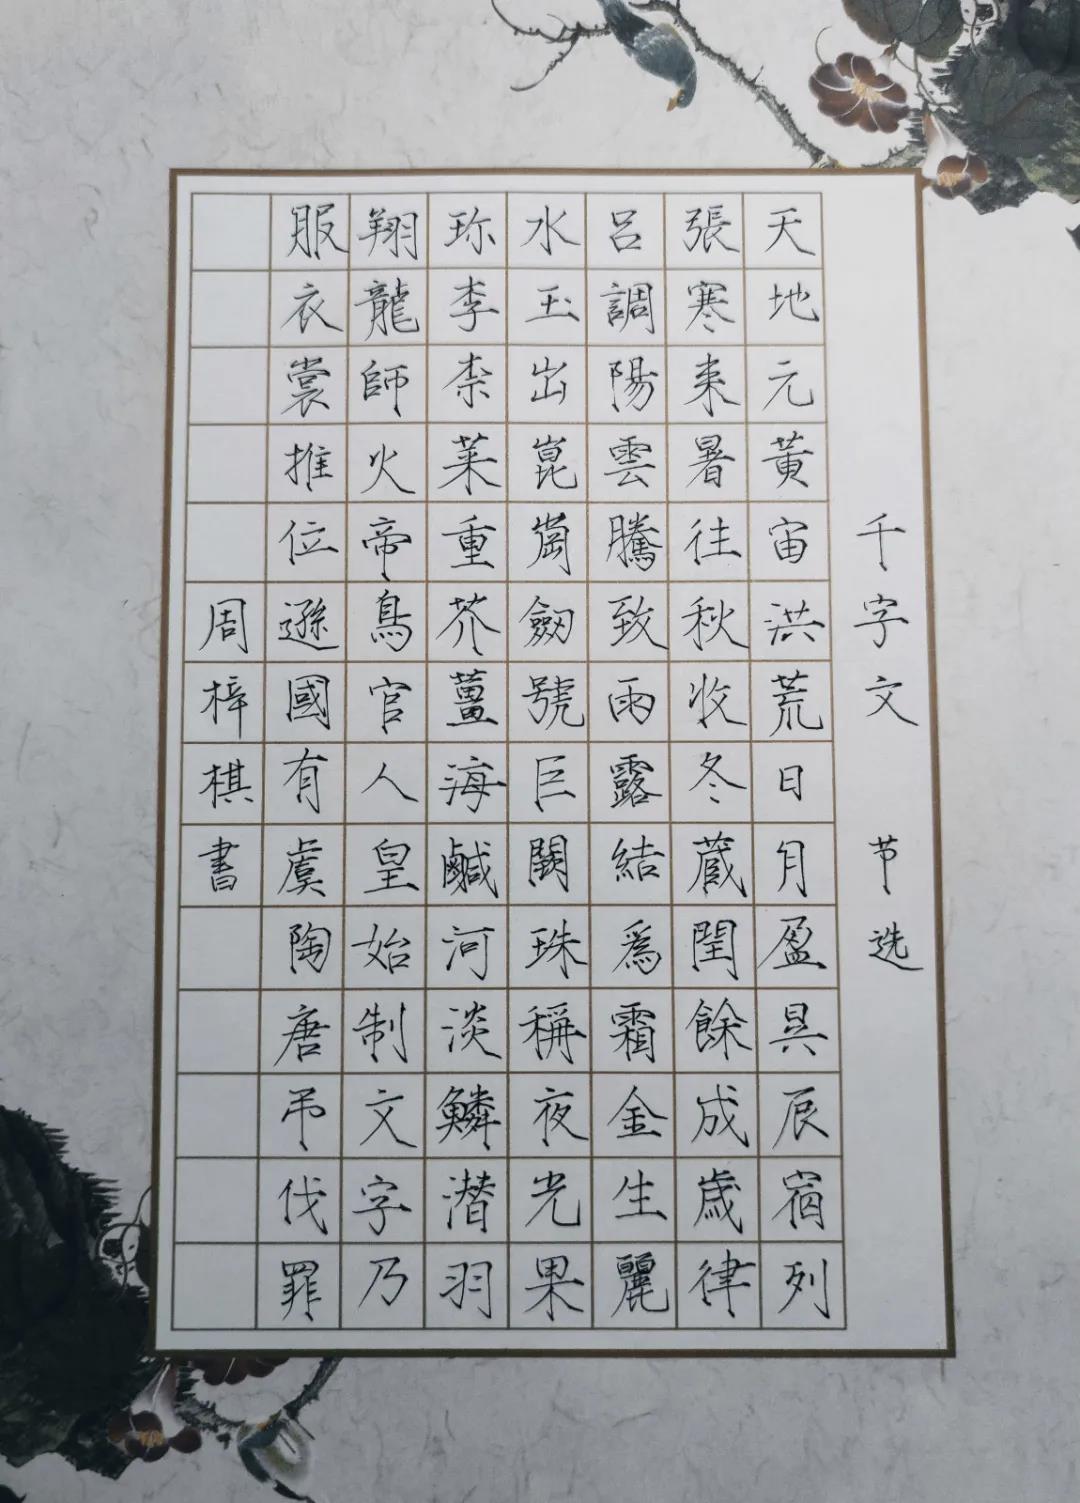 千字文 节选
天地元黃宙洪荒日月盈昃辰宿列
張寒来暑往秋收冬蔵閏餘成歲律
呂調陽雲騰致雨露結為霜金生麗
水玉出崑崗劔號巨闕珠稱夜光果
珎李柰莱重芥薑海鹹河淡鱗潜羽
翔龍師火帝鳥官人皇始制文字乃
服衣裳推位遜國有虞陶唐吊伐罪
周梓棋書